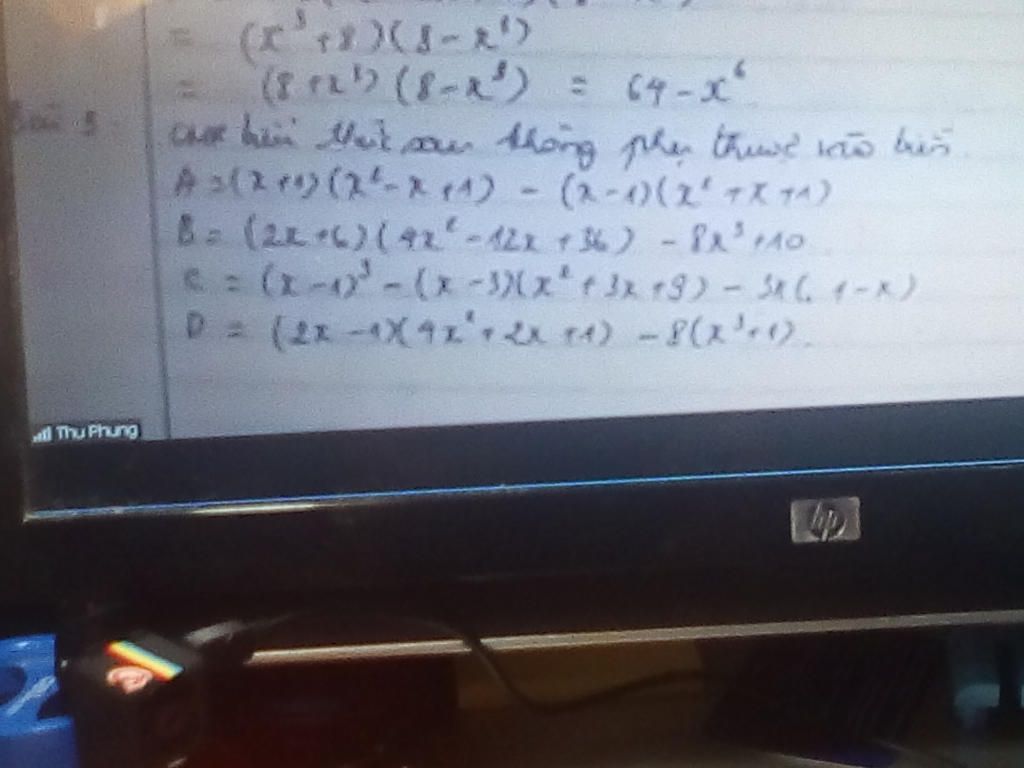 = (x³+8)(8-x³)
= (8+x³)(8-x³) = 64-x⁶
Bài 3
biểu thức sau không phụ thuộc vào biến.
A=(x+1)(x²-x+1) - (x-1)(x²+x+1)
B= (2x+6)(4x²-12x+36) - 8x³+10
C = (x-1)³-(x-3)(x²+3x+9)-3x(1-x)
D = (2x-1)(4x²+2x+1) -8(x³+1).
Thu Phung
hp